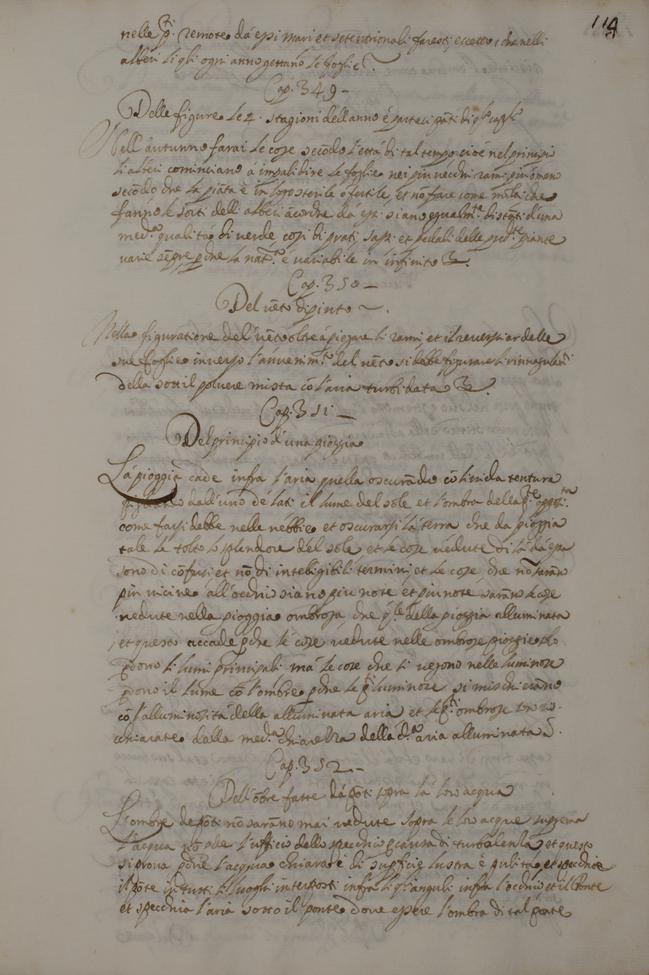 114
nelle pti remote da essi mari et setentrionali foresti eccetto, che nelli
alberi li qli ogni anno gettano le foglie.
Cap. 349 –
Delle figure le 4. stagioni dell anno e partecipāti di qlle
Nell' autunno farai le cose secōdo l'età di tal tempo cioè nel principio
li alberi cominciano à impalidire le foglie nei piu vecchi rami piu ò meno
secōdo che la piāta è in loco sterile o fertile, et nō fare come molti che
fanno le sorti dell' alberi ācorche da epsi siano equalmte distāti d'una
medª qualità di verde cosi di prati sassi et pedali delle predte piante
varie sēpre perche la natª è variabile in infinito &.
Cap. 350 –
Del vēto dipinto ~.
Nella figuratione del vēto oltre à piegare li rami et il reversiar delle
sue foglie inverso l'avenimto del vēto si debbe figurare li rinnugolati
della sottil polvere mista cō l'aria turbidata &.
Cap. 351. –
Del principio d'una pioggia
La pioggia cade infra l'aria quella oscurādo cō livida tentura
pigliando dall'uno de lati il lume del sole et l'ombra della pte oppostª
come farsi debbe nelle nebbie et oscurarsi la terra che da pioggia
tale le tolto lo splendore del sole et le cose vedute di là da epsa
sono di cōfusi et nō di intelligibili termini et le cose, che nō sarāno
piu vicine all' occhio siano piu note et piu note sarāno le cose
vedute nella pioggia ombrosa che qlle della pioggia alluminata
et questo accade pche le cose vedute nelle ombrose pioggie solo
pdono li lumi principali mà le cose che si vegono nelle luminose
pdono il lume cō l'ombre pche le pti luminose si mischierāno
cō l'alluminosità della alluminata aria et le pti ombrose
chiarate dalla medª chiarezza della dª aria alluminata.
Cap. 352 –
Dell' ōbre fatte da pōti sopra la loro acqua
L'ombre de pōti nō sarāno mai vedute sopra le loro acque se prima
l'acqua nō pde l'ufficio dello specchio p causa di turbolenza, et questo
si prova pche l'acqua chiara è di supficie lustra è pulita, et specchia
il pōte in tutti li luoghi interposti infra li qli anguli infra l'occhio et il ponte
et specchia l'aria sotto il ponte dove essere l'ombra di tal ponte